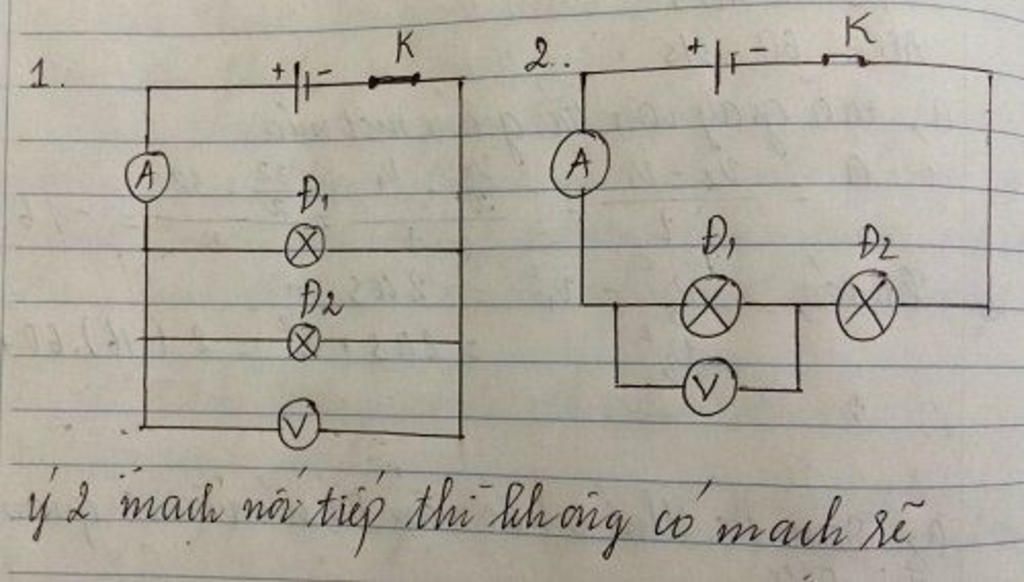 1.
+ - K
A
Đ1
Đ2
V
2.
+ - K
A
Đ1 Đ2
V
ý 2 mạch nối tiếp thì không có mạch rẽ